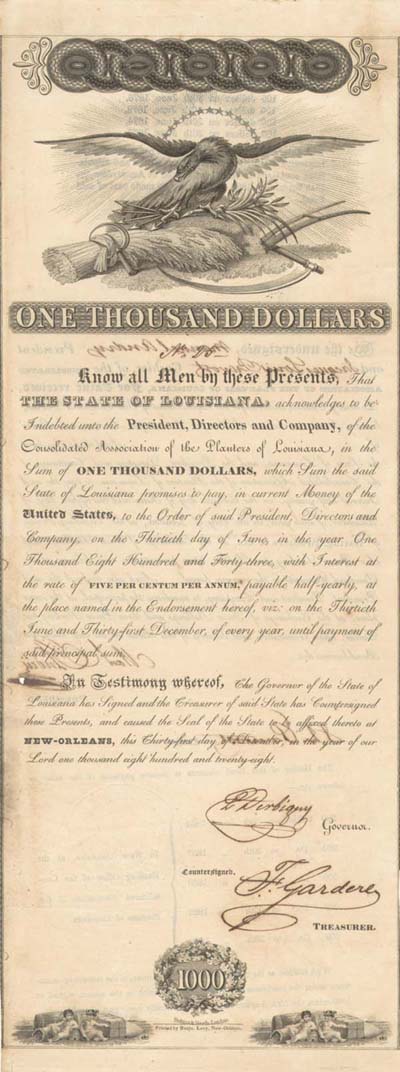 ONE THOUSAND DOLLARS
Know all Men by these Presents, That
THE STATE OF LOUISIANA, acknowledges to be
Indebted unto the President, Directors and Company, of the
Consolidated Association of the Planters of Louisiana, in the
Sum of ONE THOUSAND DOLLARS, which Sum the said
State of Louisiana promises to pay, in current Money of the
United States, to the Order of said President, Directors and
Company, on the Thirtieth day of June, in the year One
Thousand Eight Hundred and Forty-three, with Interest at
the rate of FIVE PER CENTUM PER ANNUM, payable half-yearly, at
the place named in the Endorsement hereof, viz: on the Thirtieth
June and Thirty-first December, of every year, until payment of
said principal sum.
In Testimony whereof, The Governor of the State of
Louisiana has Signed and the Treasurer of said State has Countersigned
these Presents, and caused the Seal of the State to be affixed thereto at
NEW-ORLEANS, this Thirty-first day of December, in the year of our
Lord one thousand eight hundred and twenty-eight.
P. Derbigny
Governor.
Countersigned,
F. Gardere
TREASURER.
1000
Printed by Benjn. Levy, New-Orleans.